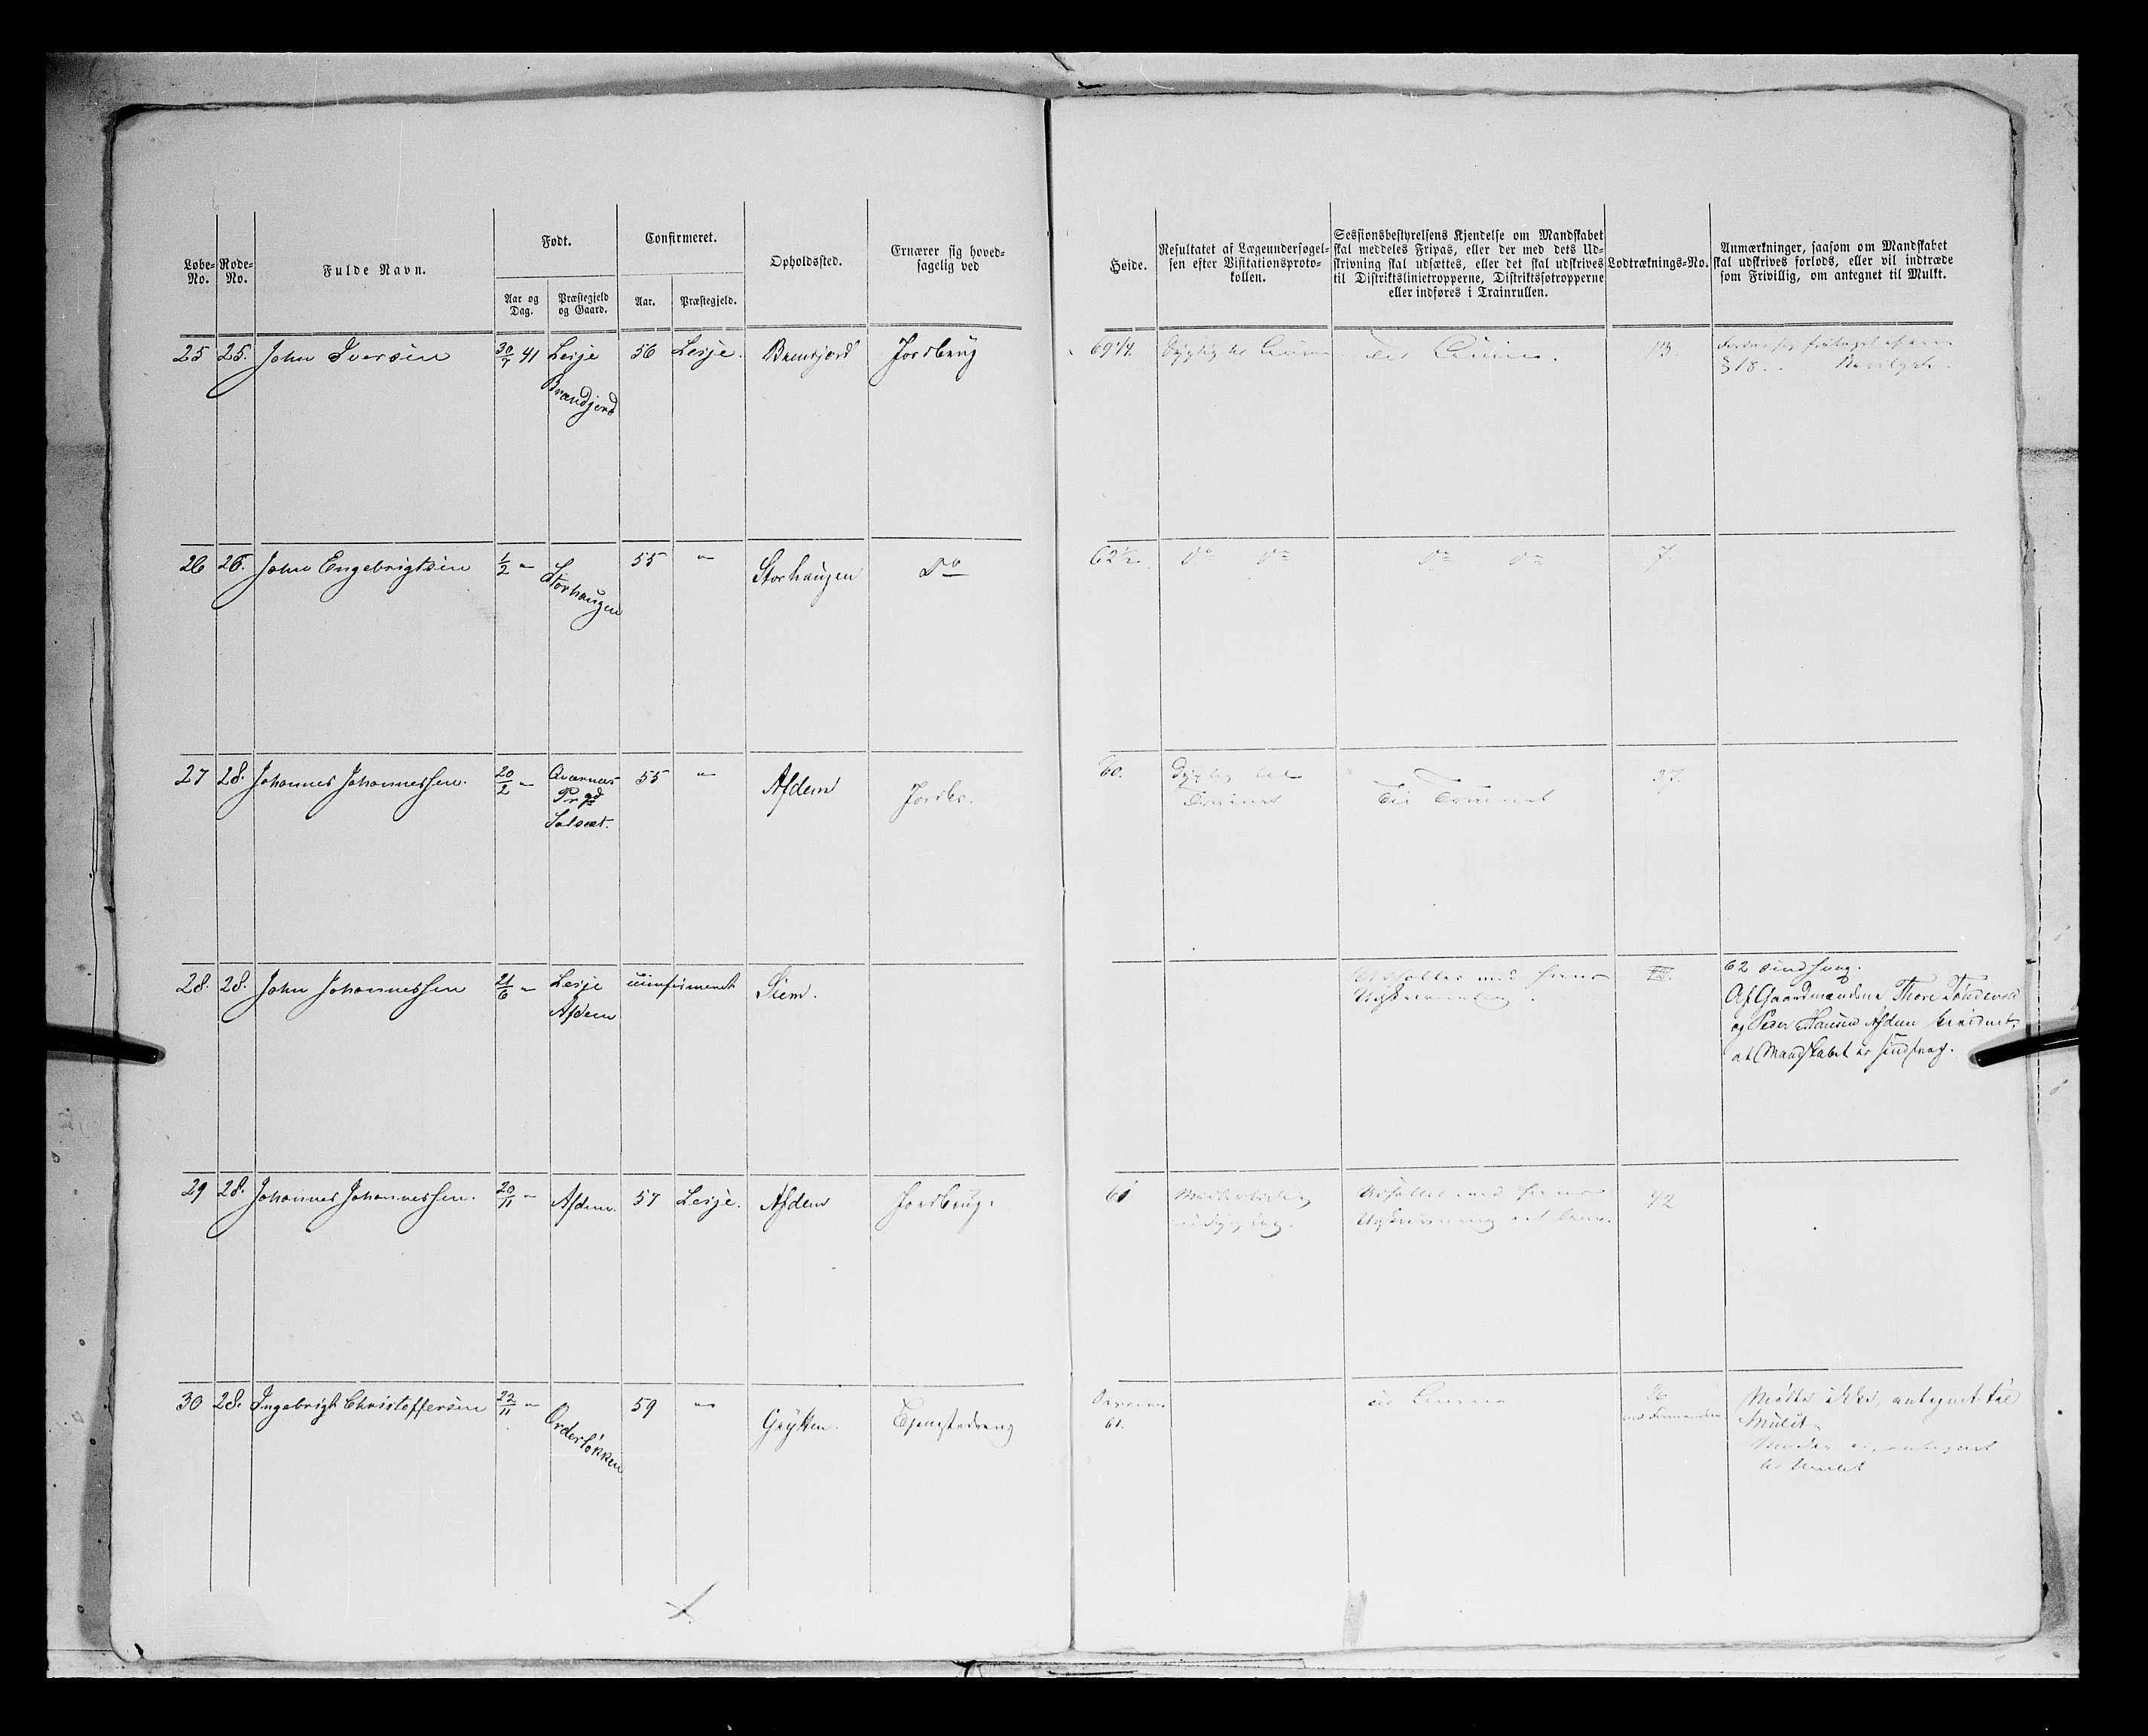 Løbe-No.
Rode-No.
Fulde Navn.
Født.
Aar og Dag.
Præstegjeld og Gaard.
Confirmeret.
Aar.
Præstegjeld.
Opholdssted.
Ernærer sig hoved-
sagelig ved
Høide.
Resultatet af Lægeundersøgel-
sen efter Visitationsproto-
kollen.
Sessionsbestyrelsens Kjendelse om Mandskabet
skal meddeles Fripas, eller der med dets Ud-
skrivning skal udsættes, eller det skal udskrives
til Distriktslinietropperne, Distriktsfotropperne
eller indføres i Trainrullen.
Lodtræknings-No.
Anmærkninger, saasom om Mandskabet
skal udskrives forlods, eller vil indtræde
som Frivillig, om antegnet til Mulkt.
25 25. John Iversen 30/7 41 Lesje 56 Lesje. Jordbrug 69 1/4. Dygtig til Linien Til Linien. 13.
Brændjord § 18.
26 26. John Engebrigtsen 1/2 " L. 55 " Storhaugen Do 62 1/2 Do Do Do Do 7.
Storhaugen
27 28. Johannes Johannessen. 20/2 " Qvarnæs 55 " Afdem Jordbr. 60. Dygtig til Til Trainet 37.
Prgd Trainet
28. 28. John Johannessen 21/6 " Lesje uconfirmeret Siem. Udsættes med hans 62 sindsvag.
Afdem Udskrivning. Af Gaardmændene Thore
og Peder Hansen Afdem
at Mandskabet er sindsvag.
29 28. Johannes Johannessen. 20/11 " Afdem. 57 Lesje. Afdem Jordbrug. 61 Midlertidig Udsættes med hans 42
udygtig. Udskrivning
30 28. Ingebrigt Christoffersen 22/11 " 59 " Grytten. Tjenestedreng til Linien 26 Mødte ikke, antegnet til
Orderløkken 61. ved Formanden Mulct.
Mødte ei, antegnet
til Mulct